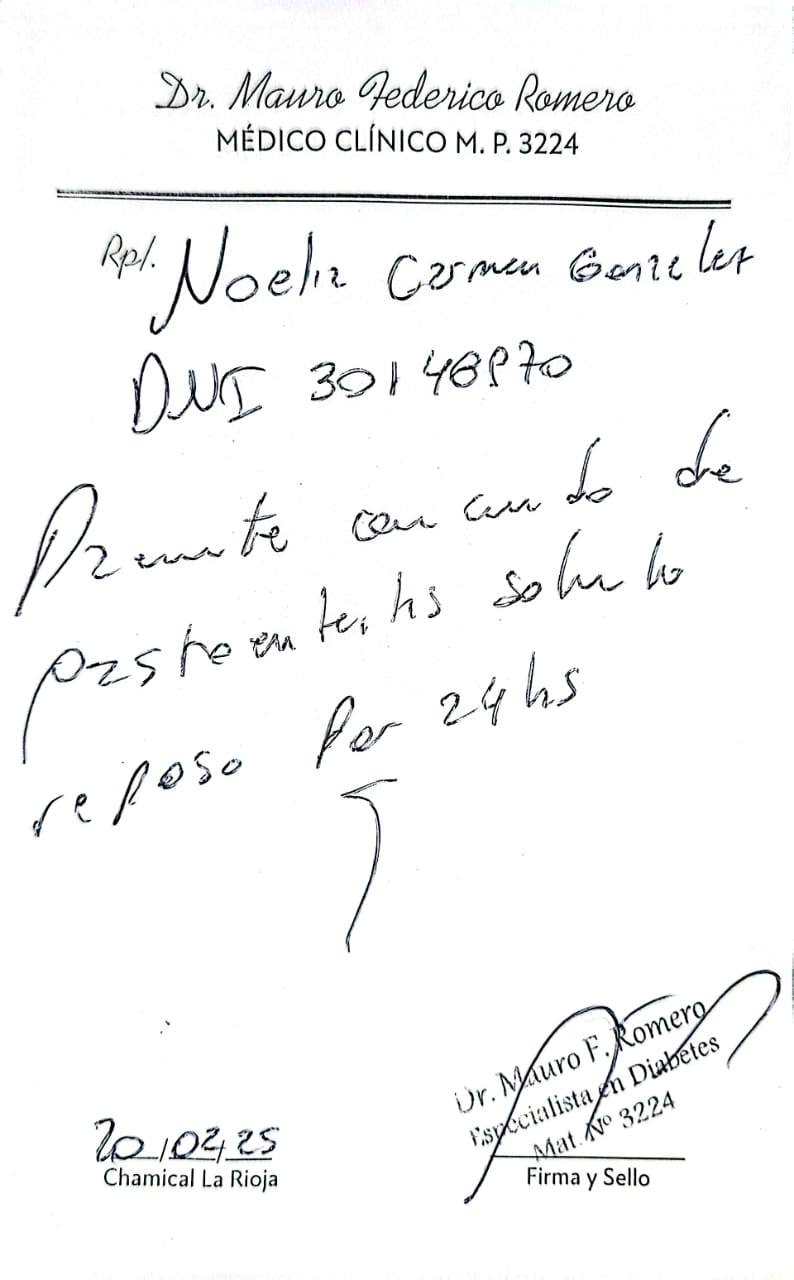 Dr. Mauro Federico Romero
MÉDICO CLÍNICO M. P. 3224
Rp/. Noelia Carmen Gonzalez
DNI 30148970
Presente con cuadro de
gastroenteritis solicito
reposo por 24 hs
20/02/25
Chamical La Rioja
Dr. Mauro F. Romero
Especialista en Diabetes
Mat. Nº 3224
Firma y Sello